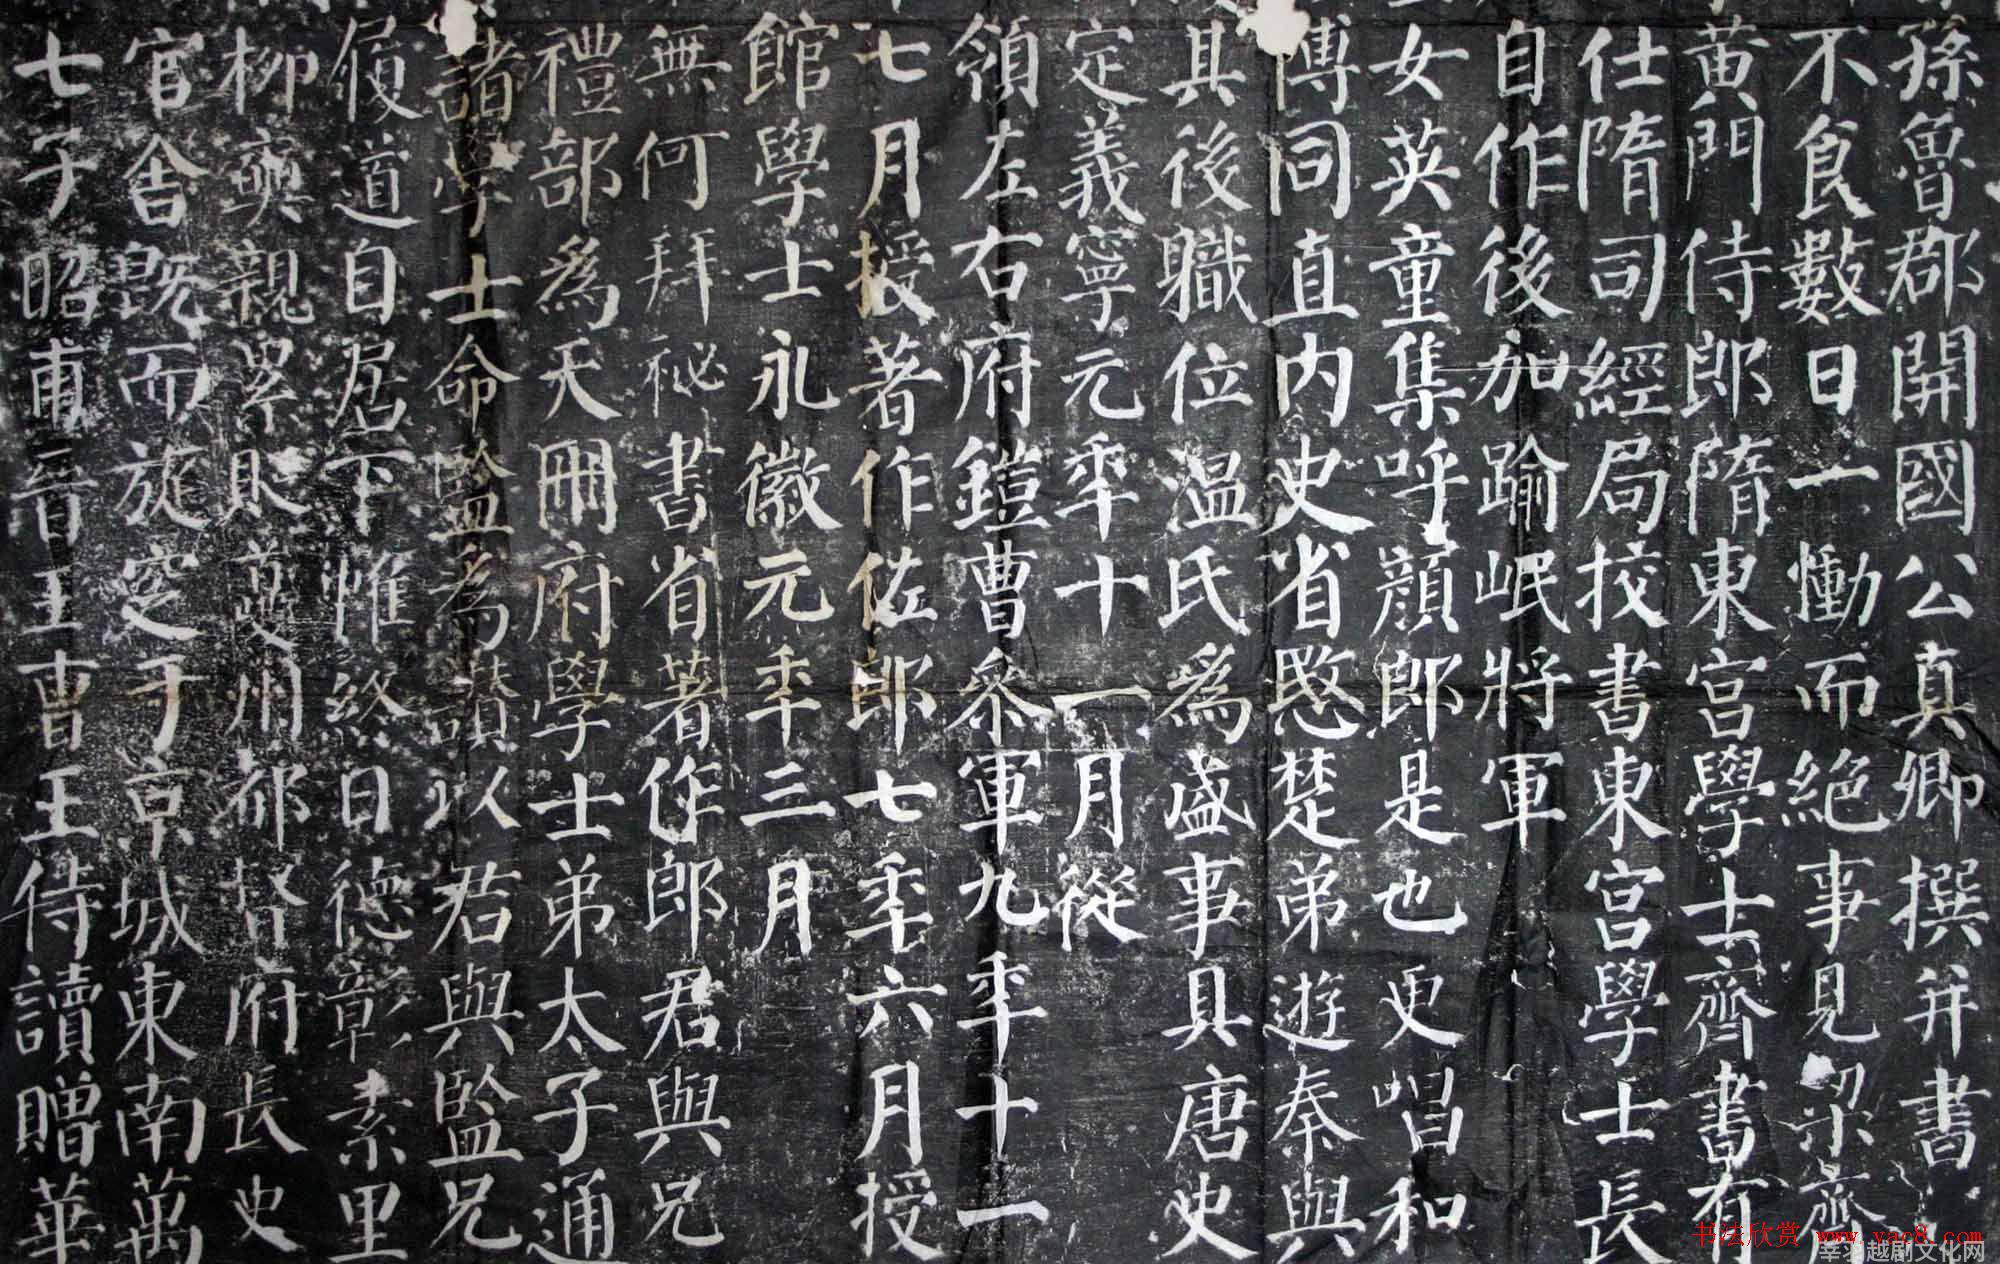 孫魯郡開國公真卿撰并書
不食數日一慟而絕事見梁齊
黃門侍郎隋東宮學士齊書有
仕隋司經局挍書東宮學士長
自作後加踰岷將軍
女英童集呼顏郎是也更唱和
博同直內史省愍楚弟遊秦與
其後職位温氏爲盛事具唐史
定義寧元秊十一月從
領左右府鎧曹叅軍九秊十一
七月授著作佐郎七秊六月授
館學士永徽元秊三月
無何拜祕書省著作郎君與兄
禮部爲天冊府學士弟太子通
諸學士命監爲讃以君與監兄
履道自居下帷終日德彰素里
柳奭親累貶夔州都督府長史
官舍既而旋窆于京城東南萬
七子昭甫晉王曹王侍讀贈華
书法欣赏 www.yac8.com
莘羽越剧文化网